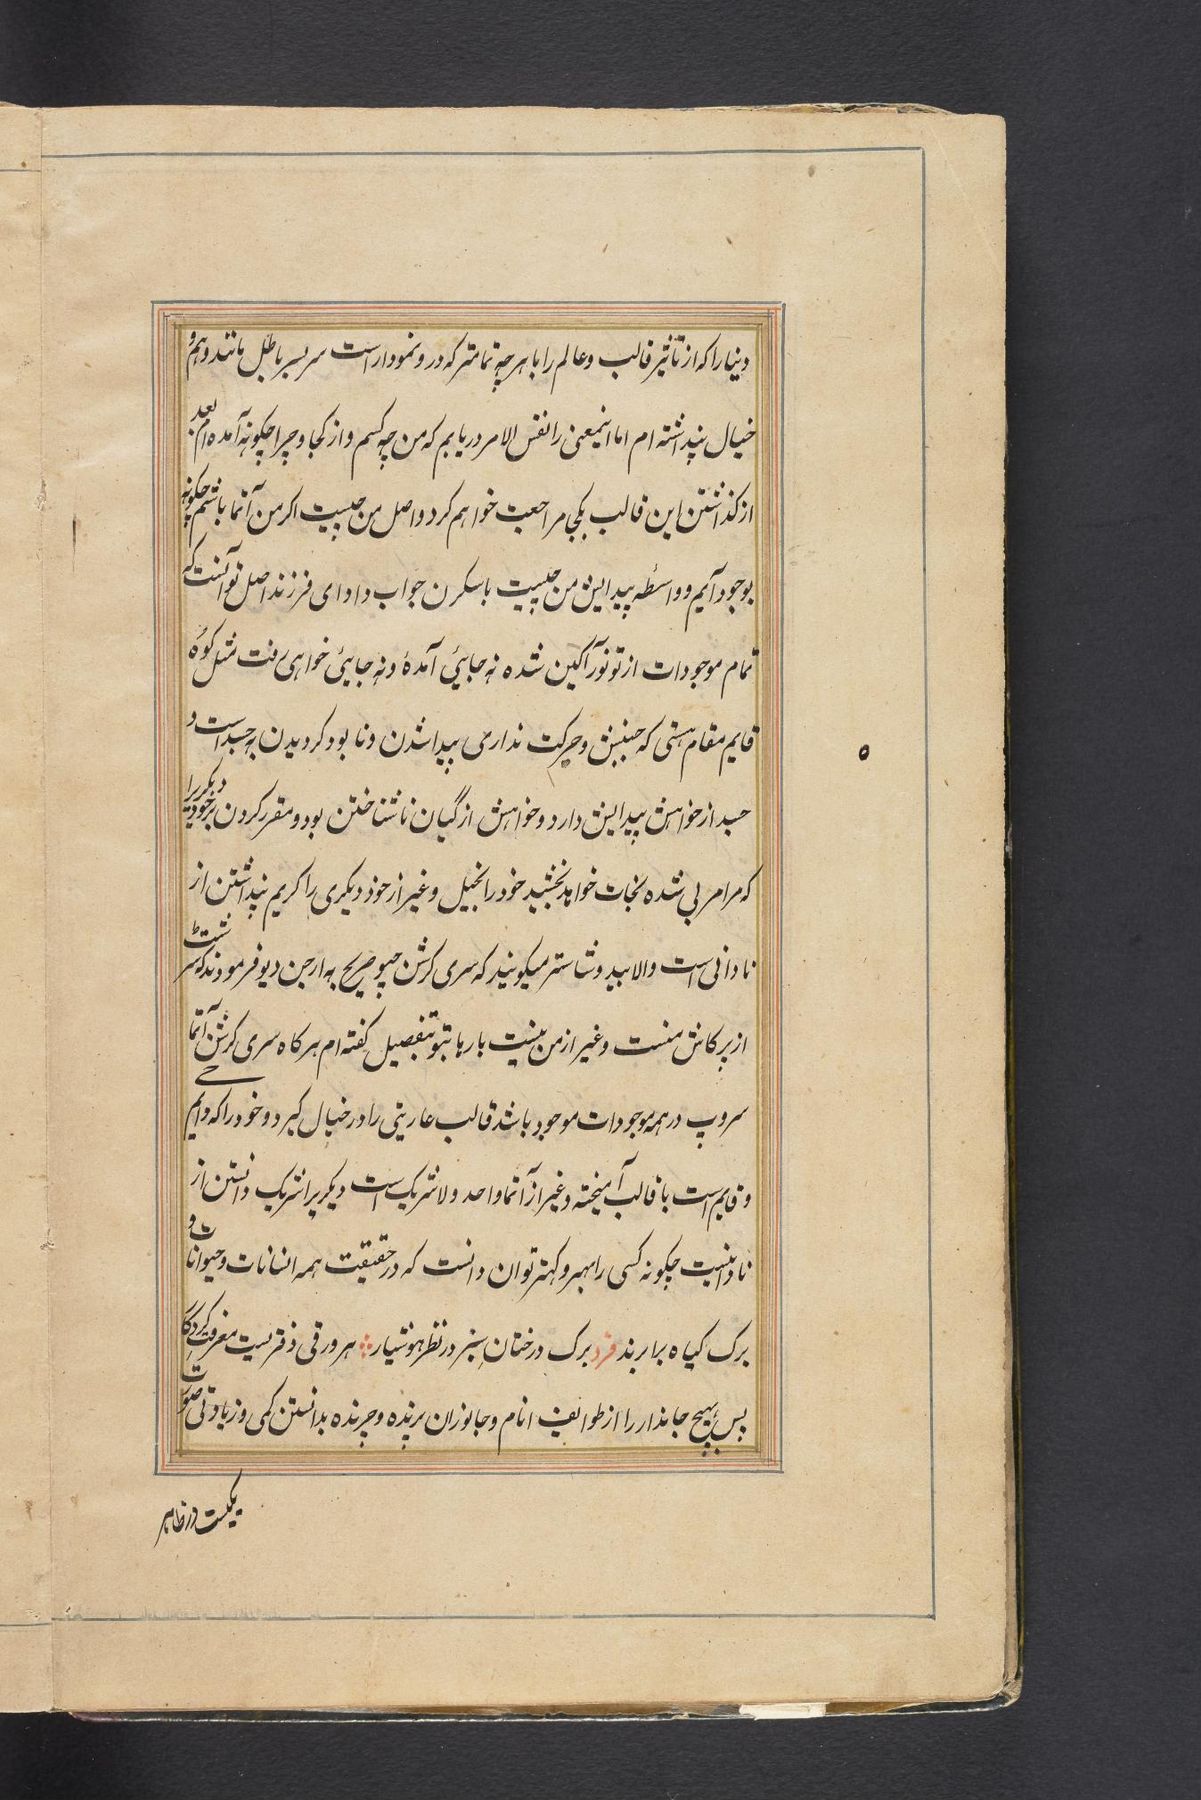 دنیا را که از تأثیر قالب و عالم را با هر چه تمامتر که در و نمودار است سر بسر باطل مانند وهم و
خیال پنداشته ام اما اینمعنی را نفس الامر دریابم که من چه کسم و از کجا و چرا چگونه آمده ام بعد
از گذاشتن این قالب بکجا مراجعت خواهم کرد و اصل من چیست اگر من آتما باشم چگونه
بوجود آیم و واسطه پیدایش من چیست باسکرن جواب داد ای فرزند اصل تو آنست که
تمام موجودات از تو نور آگین شده نه جائی آمدهٔ و نه جائی خواهی رفت مثل کوه
قایم مقام هستی که جنبش و حرکت نداری پیدا شدن و نابود گردیدن به جسد است و
جسد از خواهش پیدایش دارد و خواهش از گیان ناشناختن بود و مقرر کردن بر خود دیگریرا
که مرا مربی شده نجات خواهد بخشید خود را بخیل و غیر از خود دیگری را کریم پنداشتن از
نادانی است والا بید و شاستر میگویند که سری کرشن جیو صریح به ارجن دیو فرمودند که سرشت
از پرکاش منست و غیر از من نیست بارها بتو بتفصیل گفته ام هر گاه سری کرشن آتما
سروپ در همه موجودات موجود باشد قالب عاریتی را در خیال گیرد و خود را که دایم
و قایم است با قالب آمیخته و غیر از آتما واحد و لا شریک است دیگریرا شریک دانستن از
نادانیست چگونه کسی را مهتر و کهتر توان دانست که در حقیقت همه انسانات و حیوانات و
برگ گیاه برابرند فرد برگ درختان سبز در نظر هوشیار ∴ هر ورقی دفتریست معرفت کردگار
پس هیچ جاندار را از طوایف انام و جانوران پرنده و چرنده بدانستن کمی و زیادتی صورت
یکیست در ظاهر